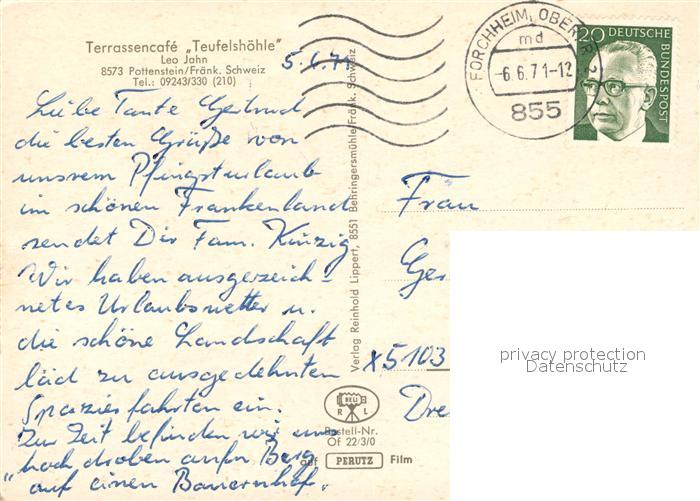 Terrassencafé „Teufelshöhle"
Leo Jahn
8573 Pottenstein/Fränk. Schweiz
Tel.: 09243/330 (210)
5.6.71
Liebe Tante Gertrud
die besten Grüße von
unsrem Pfingsturlaub
im schönen Frankenland
sendet Dir Fam. Künzig
Wir haben ausgezeich-
netes Urlaubswetter u.
die schöne Landschaft
läd zu ausgedehnten
Spazierfahrten ein.
Zur Zeit befinden wir uns
"hoch droben aufm Berg
auf einen Bauernhof."
Verlag Reinhold Lippert, 8551 Behringersmühle/Fränk. Schweiz
FORCHHEIM, OBERFR 2
md
-6.6.71-12
855
20 DEUTSCHE
BUNDESPOST
Frau
Ger
x5103
Dre
RELI
R L
Bestell-Nr.
Of 22/3/0
auf PERUTZ Film
privacy protection
Datenschutz